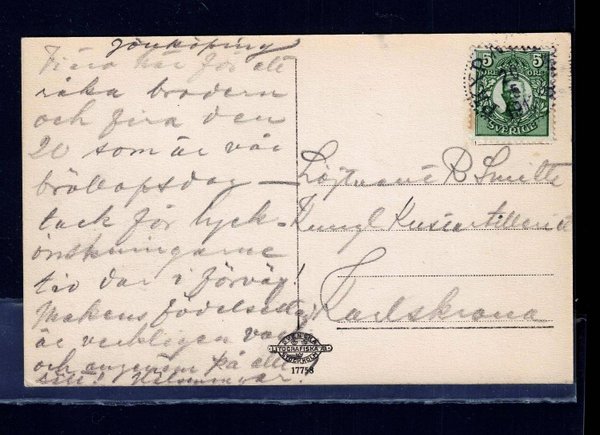 Jönköping
Vi äro här för att
råka brodern
och fira den
20 som är vår
bröllopsdag
tack för lyck-
önskningarne
till dar i förväg!
Makens födelsedag
är verkligen
och angenäm på allt
sätt! Hälsningar.
5 5
ÖRE ÖRE
SVERIGE
Löjtnant B Smitte
Kungl Kustartilleriet
Karlskrona
LITOGRAFISKA
17758